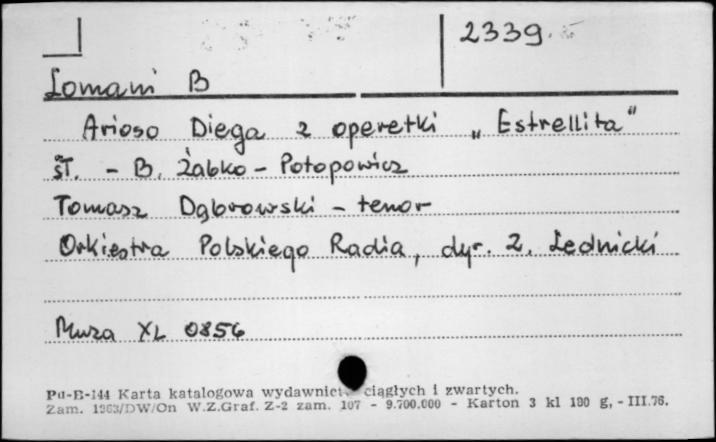 2339
Lomani B
Arioso Diega z operetki „Estrellita"
ST. - B. Żabko - Potopowicz
Tomasz Dąbrowski - tenor
Orkiestra Polskiego Radia, dyr. Z. Lednicki
Muza XL 0856
Pu-B-144 Karta katalogowa wydawnictw ciągłych i zwartych.
Zam. 1963/DW/On W.Z.Graf. Z-2 zam. 107 - 9.700.000 - Karton 3 kl 180 g, - III.76.